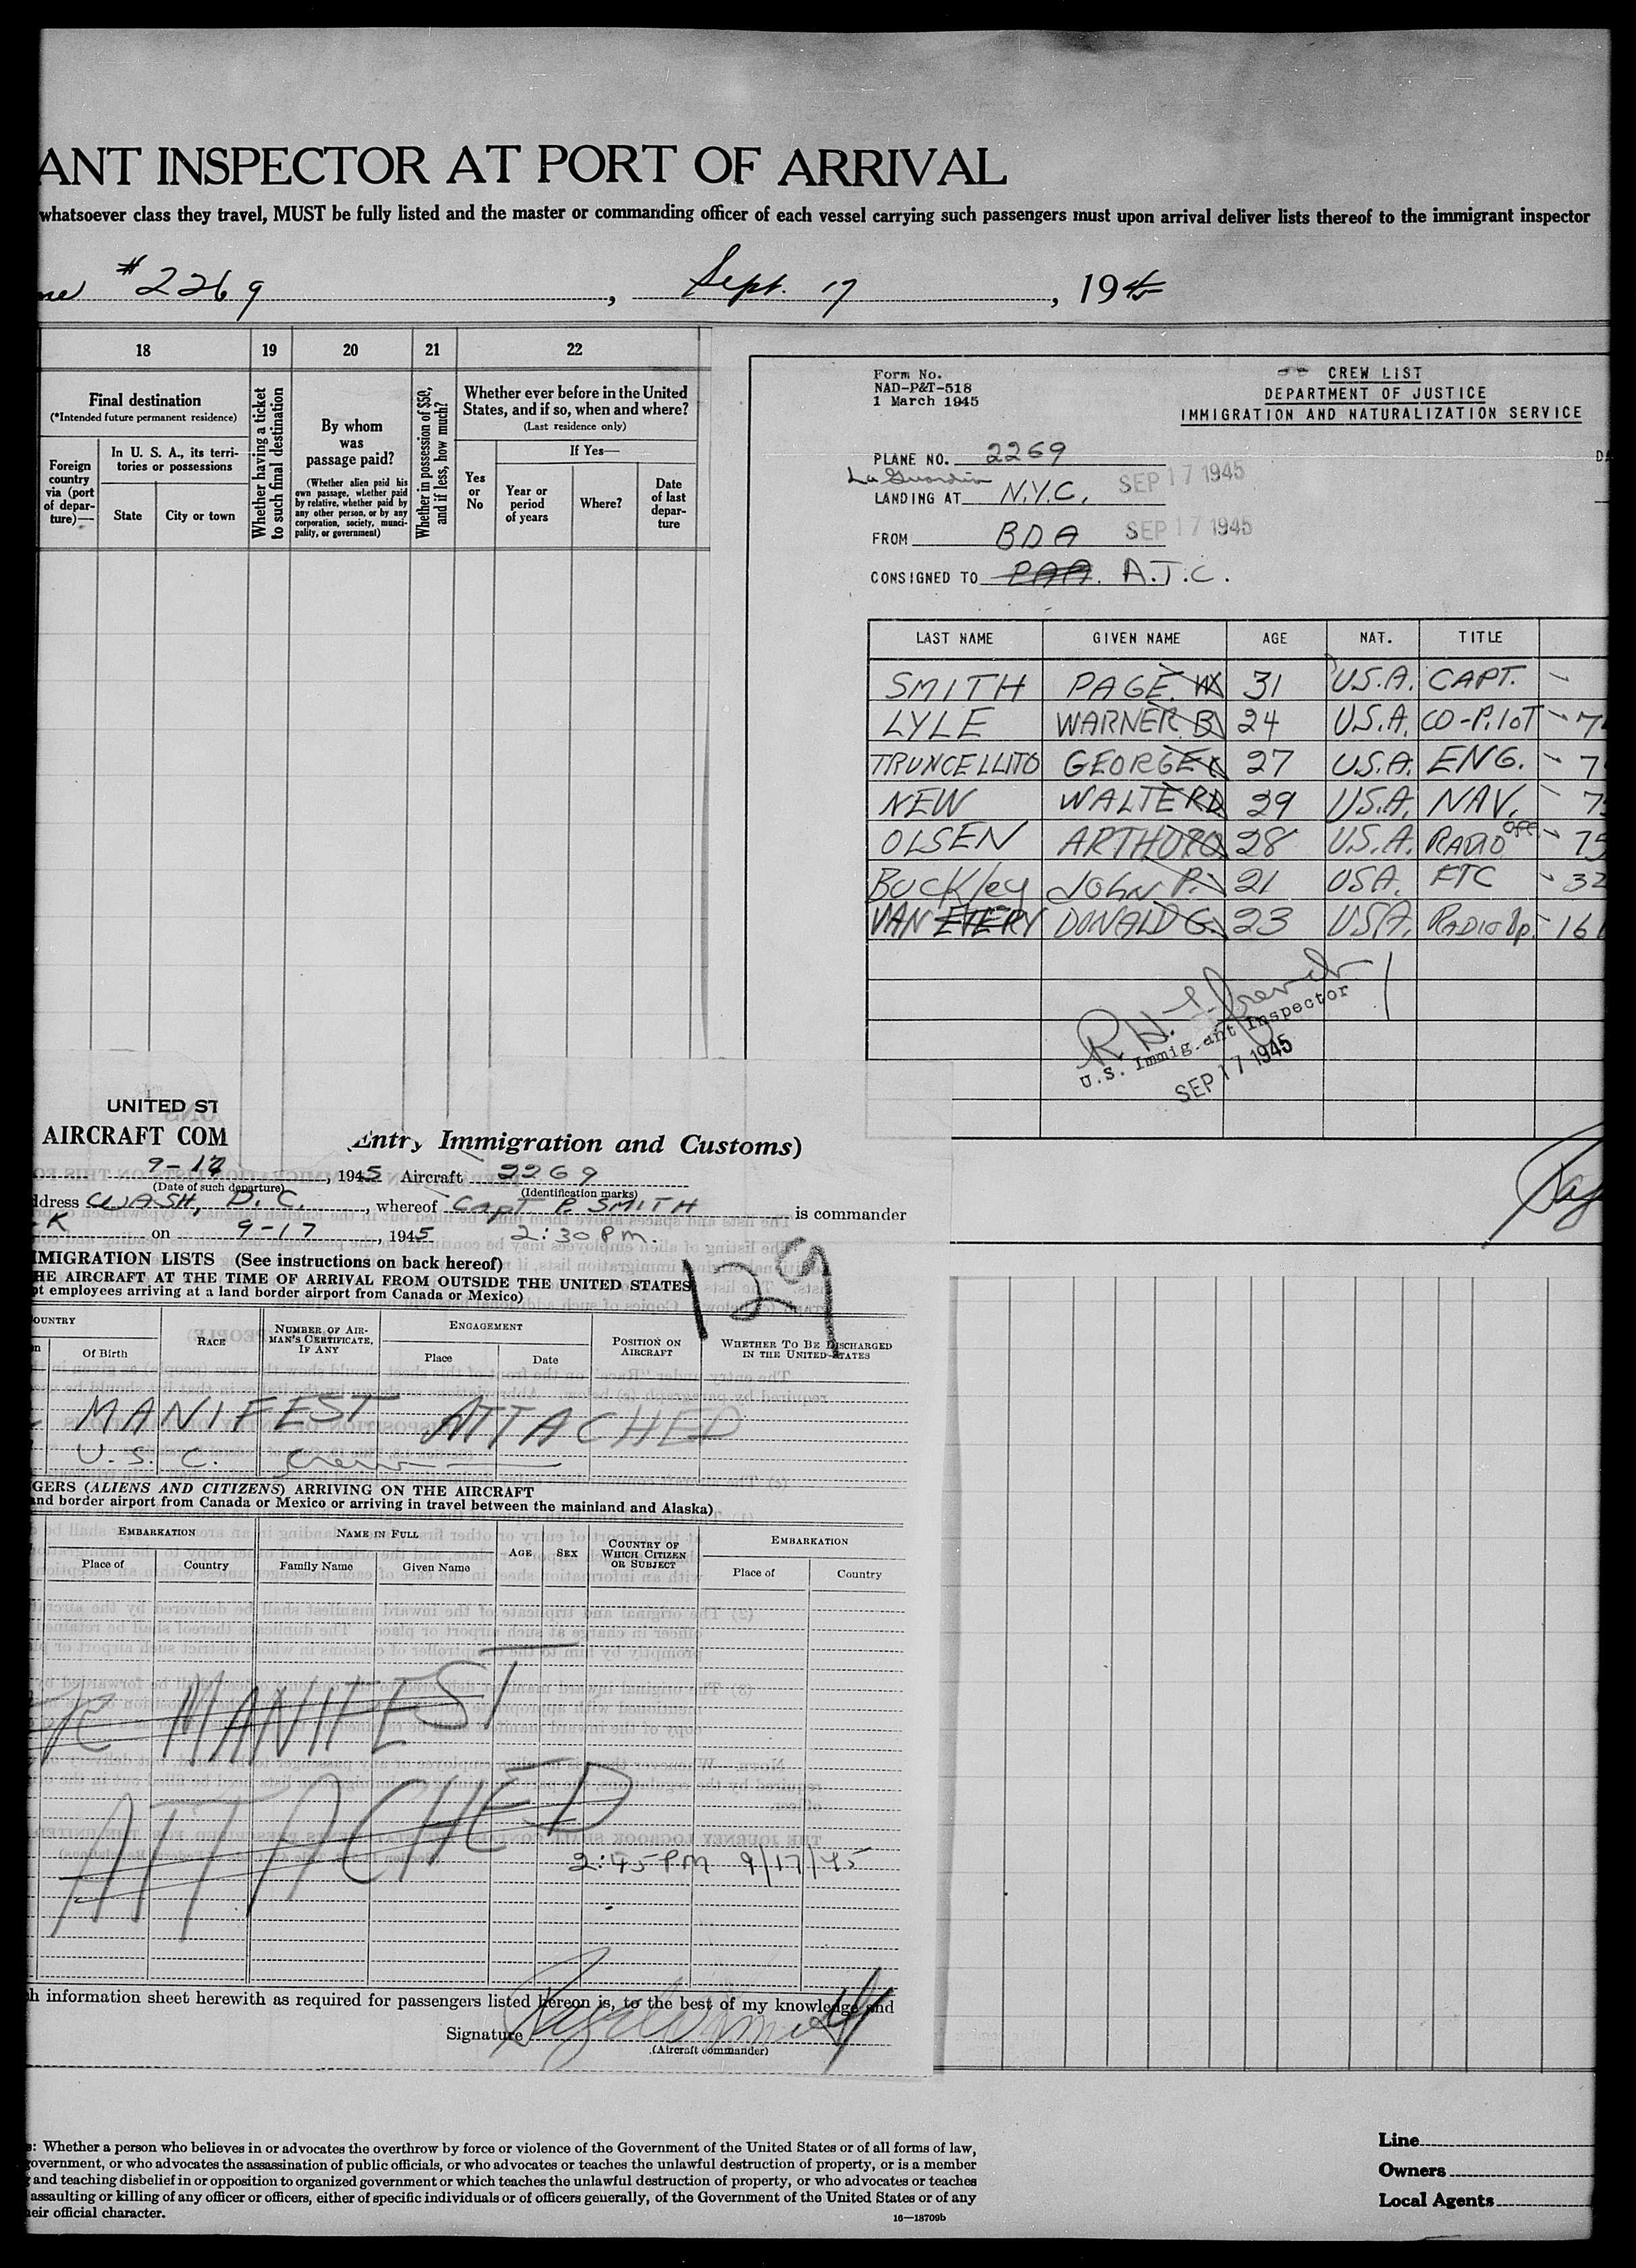 ANT INSPECTOR AT PORT OF ARRIVAL
whatsoever class they travel, MUST be fully listed and the master or commanding officer of each vessel carrying such passengers must upon arrival deliver lists thereof to the immigrant inspector
#2269, Sept. 17, 1945
18 19 20 21 22
Final destination
(*Intended future permanent residence)
Foreign country via (port of departure)—
In U. S. A., its territories or possessions
State
City or town
Whether having a ticket to such final destination
By whom was passage paid?
(Whether alien paid his own passage, whether paid by relative, whether paid by any other person, or by any corporation, society, municipality, or government)
Whether in possession of $50, and if less, how much?
Whether ever before in the United States, and if so, when and where?
(Last residence only)
Yes or No
If Yes—
Year or period of years
Where?
Date of last departure
Form No.
NAD-P&T-518
1 March 1945
CREW LIST
DEPARTMENT OF JUSTICE
IMMIGRATION AND NATURALIZATION SERVICE
PLANE NO. 2269
La Guardia
LANDING AT N.Y.C. SEP 17 1945
FROM BDA SEP 17 1945
CONSIGNED TO PAA. A.T.C.
LAST NAME GIVEN NAME AGE NAT. TITLE
SMITH PAGE W 31 U.S.A. CAPT.
LYLE WARNER B 24 U.S.A. CO-PILOT
TRUNCELLITO GEORGE 27 U.S.A. ENG.
NEW WALTER D 29 U.S.A. NAV.
OLSEN ARTHUR O 28 U.S.A. RADIO OPR
BUCKley JOHN P. 21 USA. FTC
VAN EVERY DONALD G. 23 USA. RADIO Op.
R. H.
U.S. Immigrant Inspector
SEP 17 1945
UNITED ST
AIRCRAFT COM
Entry Immigration and Customs)
9-17, 1945 Aircraft 2269
(Date of such departure) (Identification marks)
ddress WASH, D.C., whereof Capt P. SMITH is commander
K on 9-17, 1945 2:30 PM.
MIGRATION LISTS (See instructions on back hereof)
HE AIRCRAFT AT THE TIME OF ARRIVAL FROM OUTSIDE THE UNITED STATES
pt employees arriving at a land border airport from Canada or Mexico)
129
OUNTRY
Of Birth
RACE
NUMBER OF AIRMAN'S CERTIFICATE, IF ANY
ENGAGEMENT
Place
Date
POSITION ON AIRCRAFT
WHETHER TO BE DISCHARGED IN THE UNITED STATES
MANIFEST ATTACHED
U.S.C. Crew
GERS (ALIENS AND CITIZENS) ARRIVING ON THE AIRCRAFT
and border airport from Canada or Mexico or arriving in travel between the mainland and Alaska)
EMBARKATION
Place of
Country
NAME IN FULL
Family Name
Given Name
AGE
SEX
COUNTRY OF WHICH CITIZEN OR SUBJECT
EMBARKATION
Place of
Country
MANIFEST
ATTACHED
2:45 PM 9/17/45
h information sheet herewith as required for passengers listed hereon is, to the best of my knowledge and
Signature
(Aircraft commander)
s: Whether a person who believes in or advocates the overthrow by force or violence of the Government of the United States or of all forms of law,
government, or who advocates the assassination of public officials, or who advocates or teaches the unlawful destruction of property, or is a member
and teaching disbelief in or opposition to organized government or which teaches the unlawful destruction of property, or who advocates or teaches
assaulting or killing of any officer or officers, either of specific individuals or of officers generally, of the Government of the United States or of any
eir official character.
16—18709b
Line
Owners
Local Agents